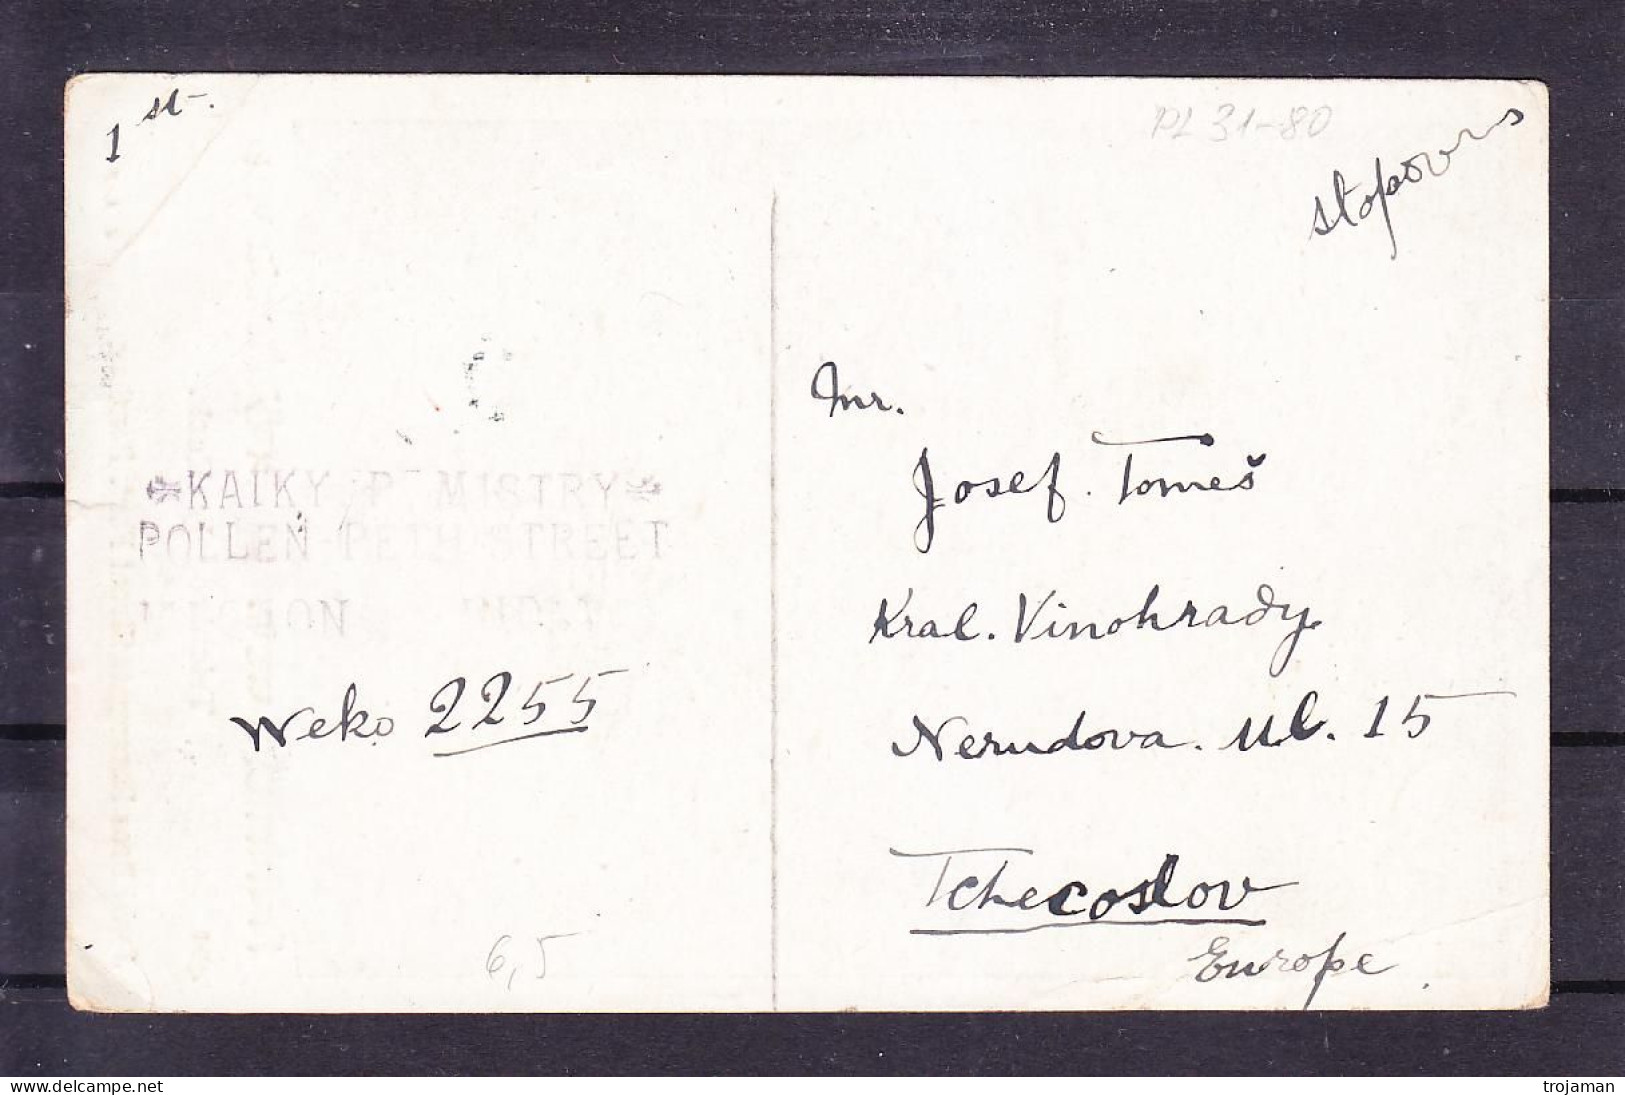 1 st.
PL 31-80
KAIKY P. MISTRY
POLLEN PETH STREET
Weko 2255
6,5
Mr.
Josef Tomeš
Kral. Vinohrady
Nerudova. Ul. 15
Tchecoslov
Europe
www.delcampe.net
trojaman